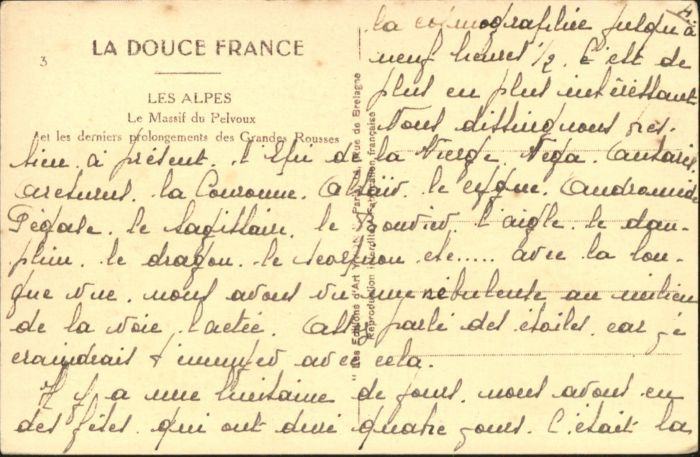 H
3
LA DOUCE FRANCE
LES ALPES
Le Massif du Pelvoux
et les derniers prolongements des Grandes Rousses
la cosmografhie jusqu'à
neuf heures 1/2. C'est de
plus en plus intéressant
Nous distinguons très
bien à présent. l'Epi de la Vierge. Vega. Antarès.
Arcturus. la Couronne. Altaïr. le cygne. Andromède
Pégase. le sagittaire. le Bouvier. l'aigle. le dau-
phin. le dragon. le scorpion etc..... avec la lon-
gue vue. nous avons vu une nébuleuse au milieu
de la voie lactée. Assez parlé des étoiles. car je
craindrais t'ennuyer avec cela.
Il y a une huitaine de jours. nous avons eu
des fêtes. qui ont duré quatre jours. C'était la
"Les Editions d'Art Paris, rue de Bretagne
Reproduction interdite. Fabrication française